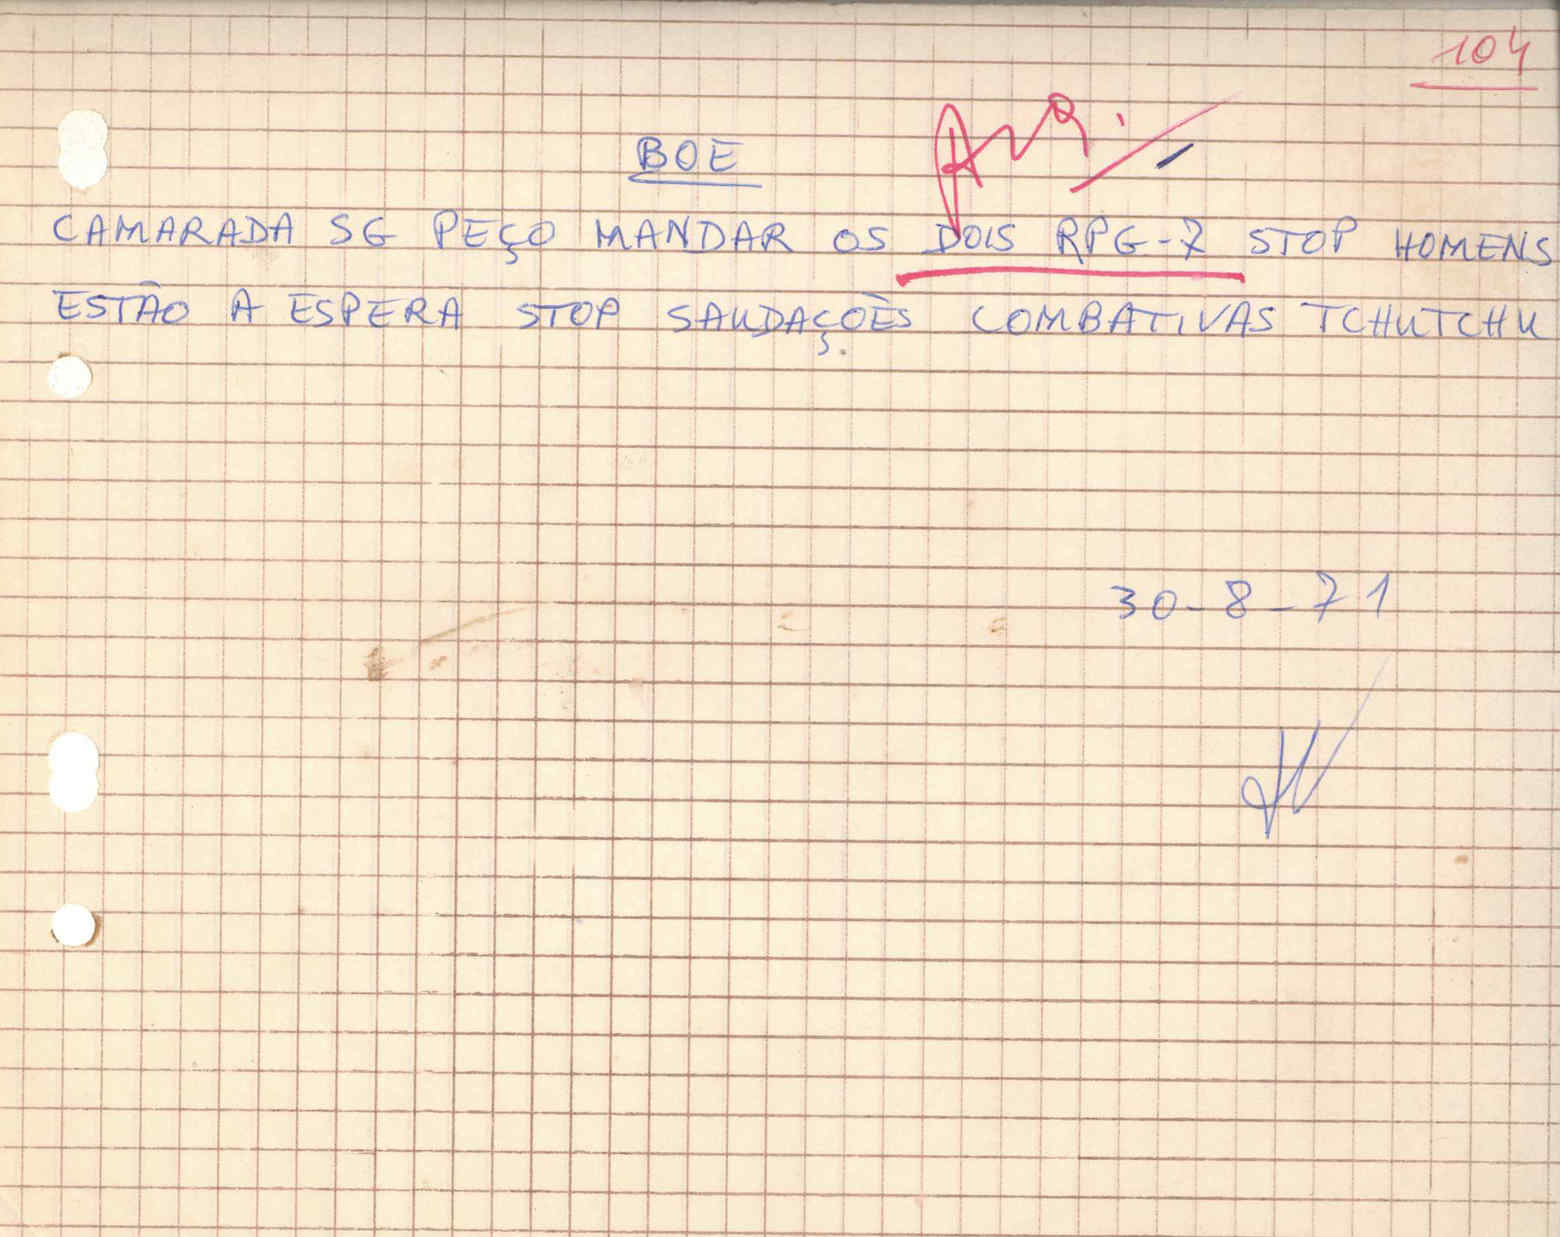 104
BOE
CAMARADA SG PEÇO MANDAR OS DOIS RPG-7 STOP HOMENS
ESTÃO A ESPERA STOP SAUDAÇÕES COMBATIVAS TCHUTCHU
30-8-71